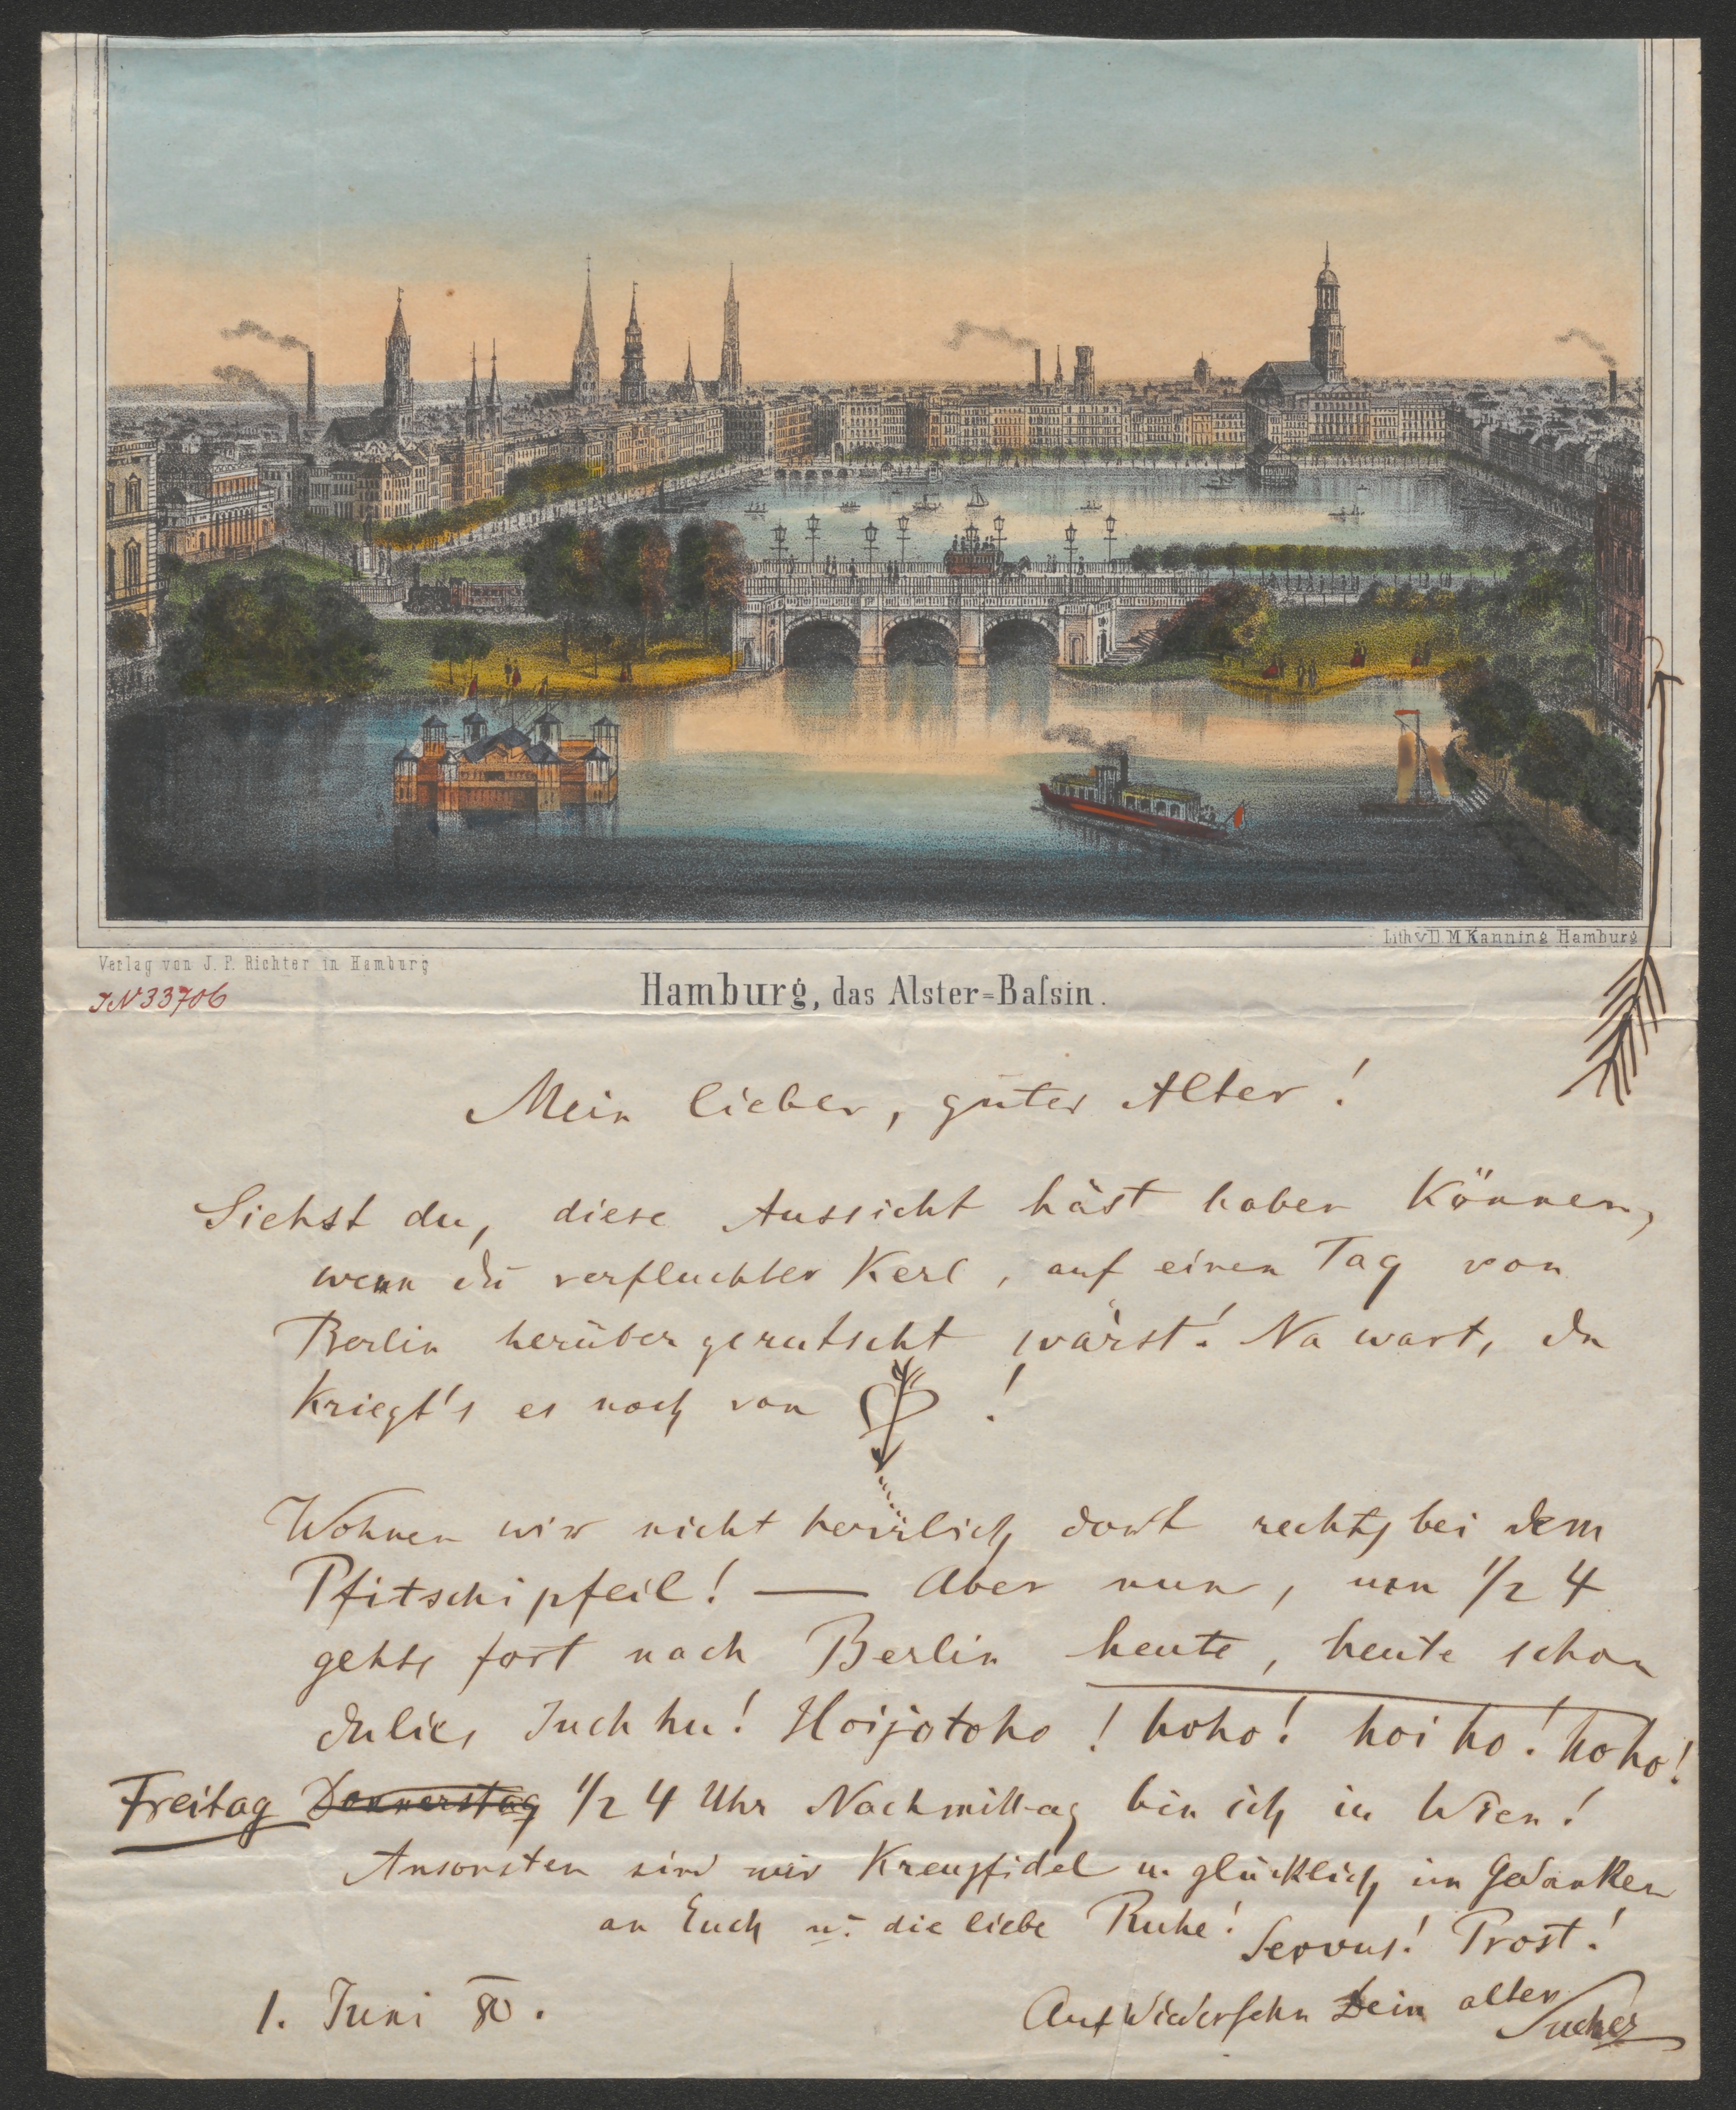 Lith. v. D. M. Kanning Hamburg
Verlag von J. P. Richter in Hamburg
IN 33706
Hamburg, das Alster=Baſsin.
Mein lieber, guter Alter!
Siehst du, diese Aussicht häst haben können,
wenn du verfluchter Kerl, auf einen Tag von
Berlin herüber gerutscht wärst! Na wart, du
kriegt's es noch von !
Wohnen wir nicht herrlich dort rechts bei dem
Pfitschipfeil! — Aber nun, um 1/2 4
gehts fort nach Berlin heute, heute schon
Juchhu! Hoijotoho! hoho! hoi ho! hoho!
Freitag Donnerstag 1/2 4 Uhr Nachmittag bin ich in Wien!
Ansonsten sind wir kreuzfidel u. glücklich im Gedanken
an Euch u. die liebe Ruhe! Servus! Prost!
1. Juni 80.
Auf Wiedersehn Dein alter
Sucher